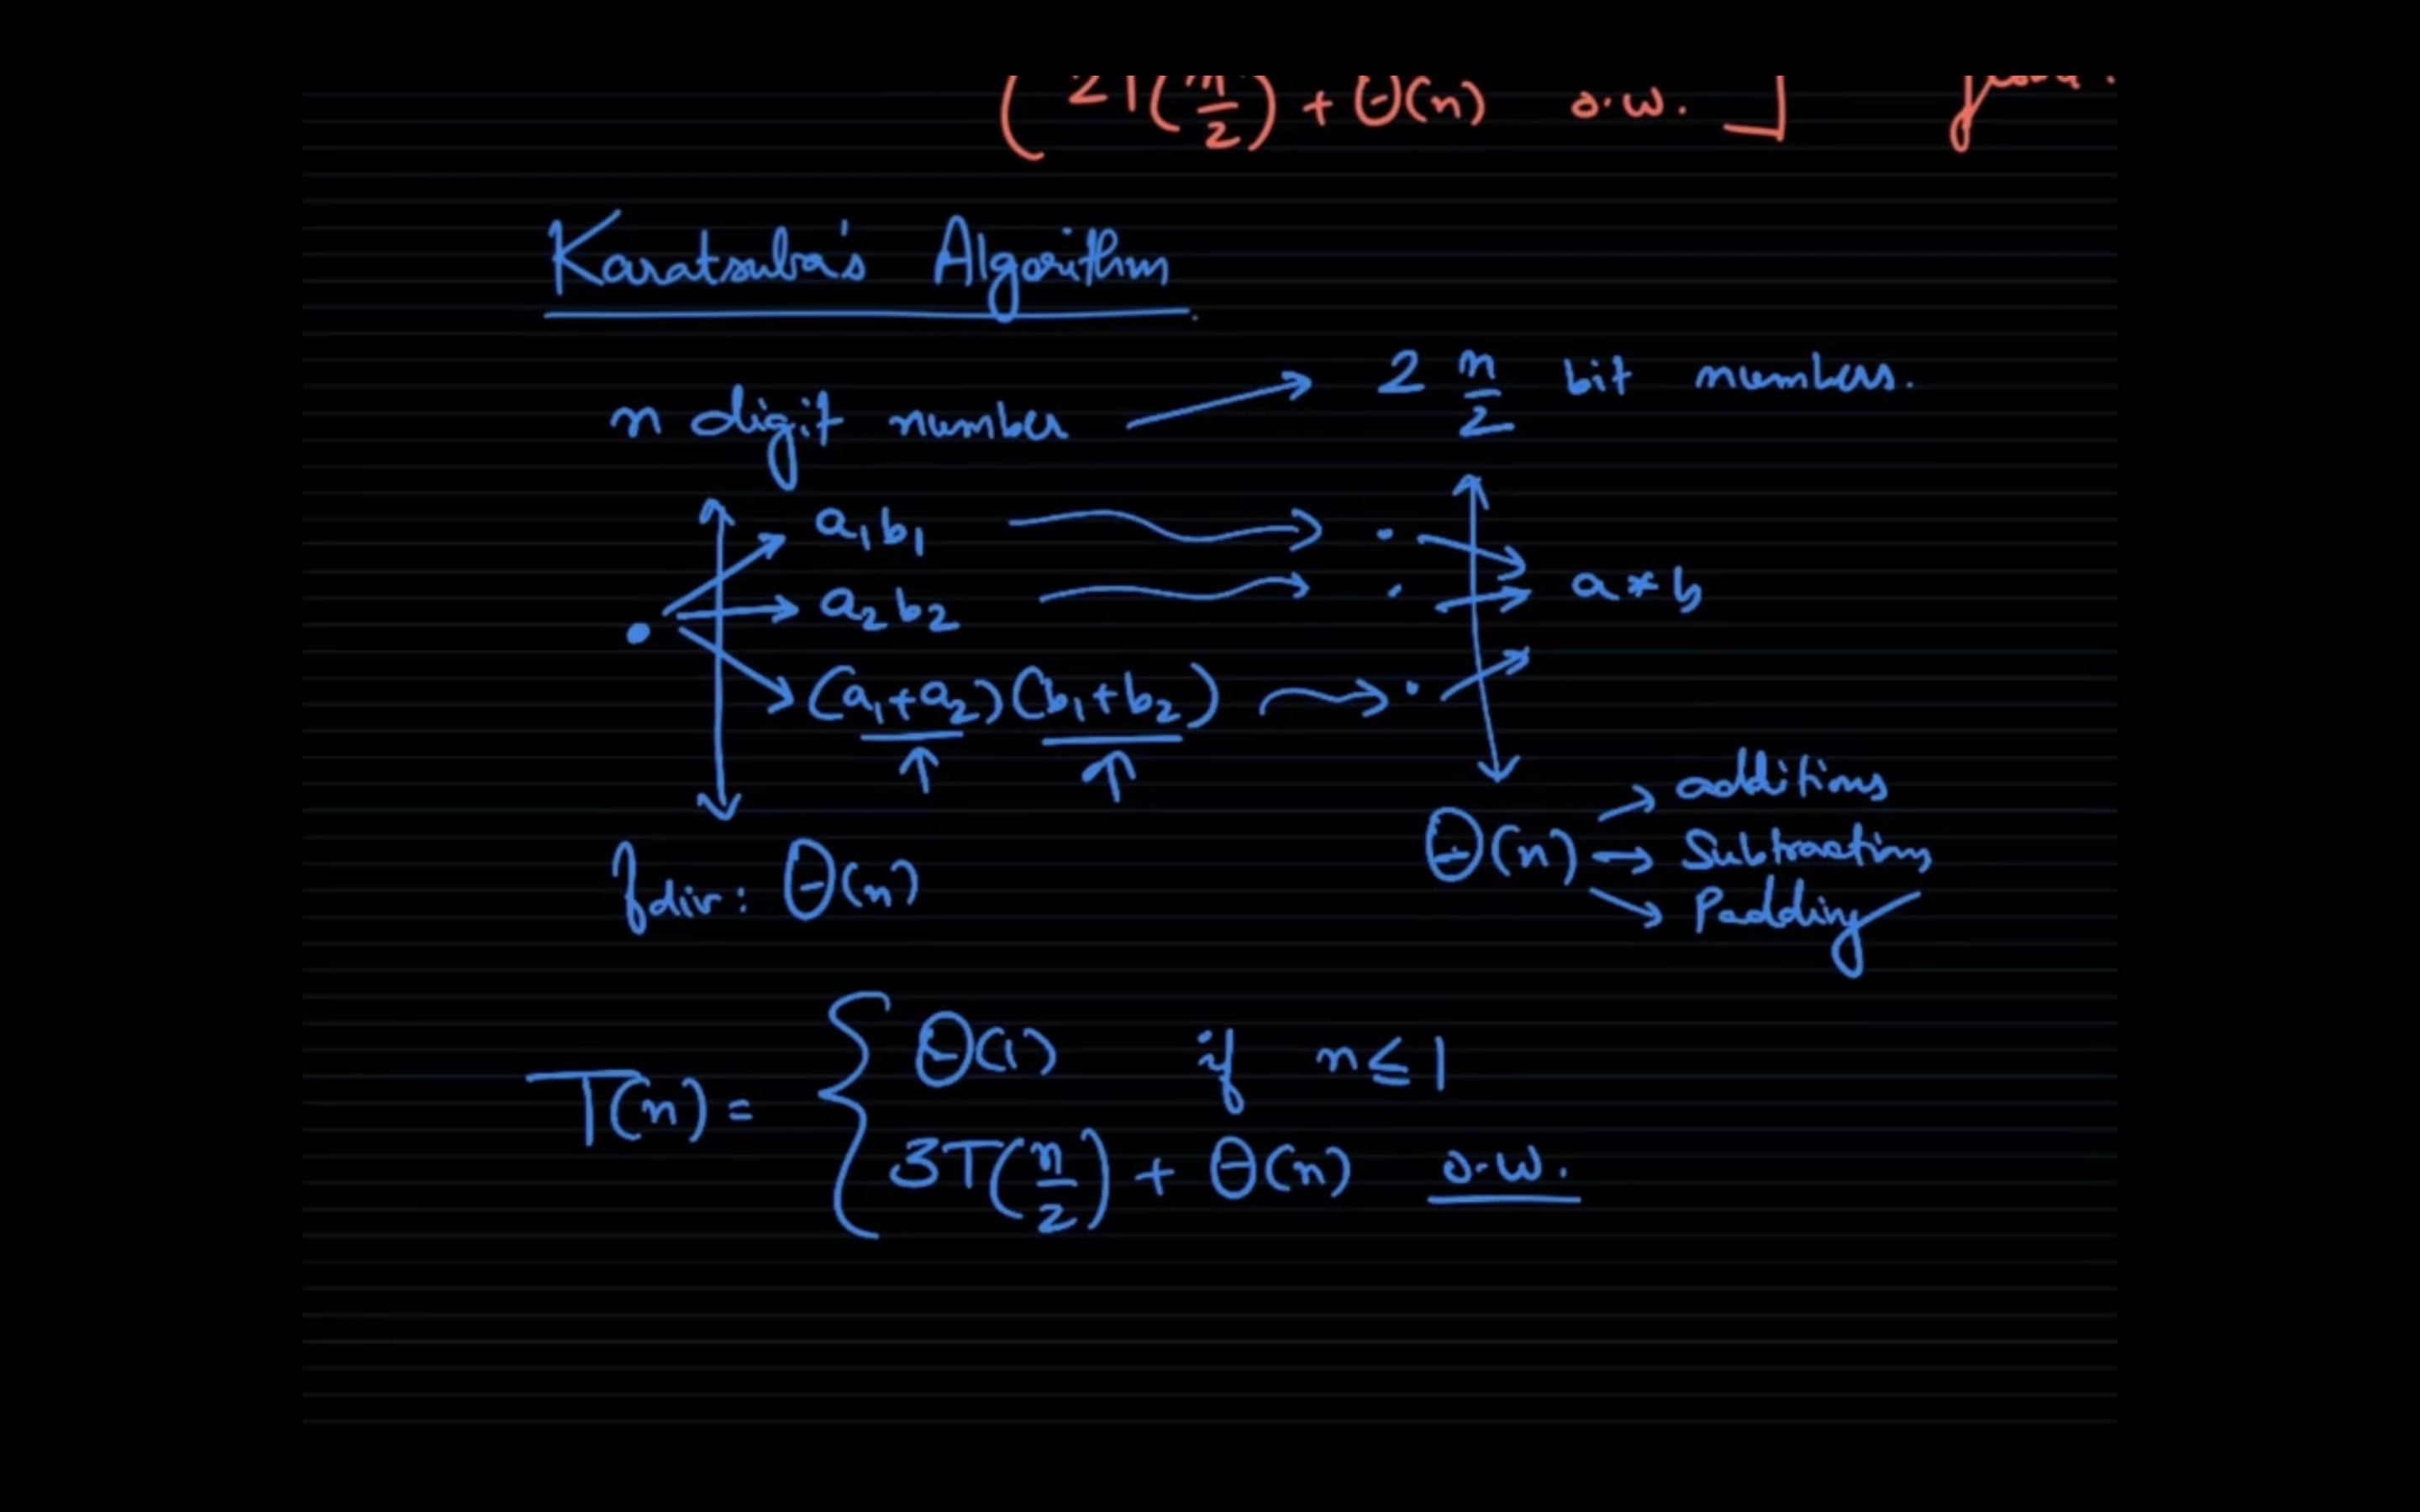 2T(n/2) + Θ(n) o.w. ]
Karatsuba's Algorithm
n digit number → 2 n/2 bit numbers.
a₁b₁
a₂b₂ a * b
(a₁+a₂)(b₁+b₂)
additions
f div: Θ(n) Θ(n) → Subtractions
Padding
T(n) = { Θ(1) if n ≤ 1
3T(n/2) + Θ(n) o.w.